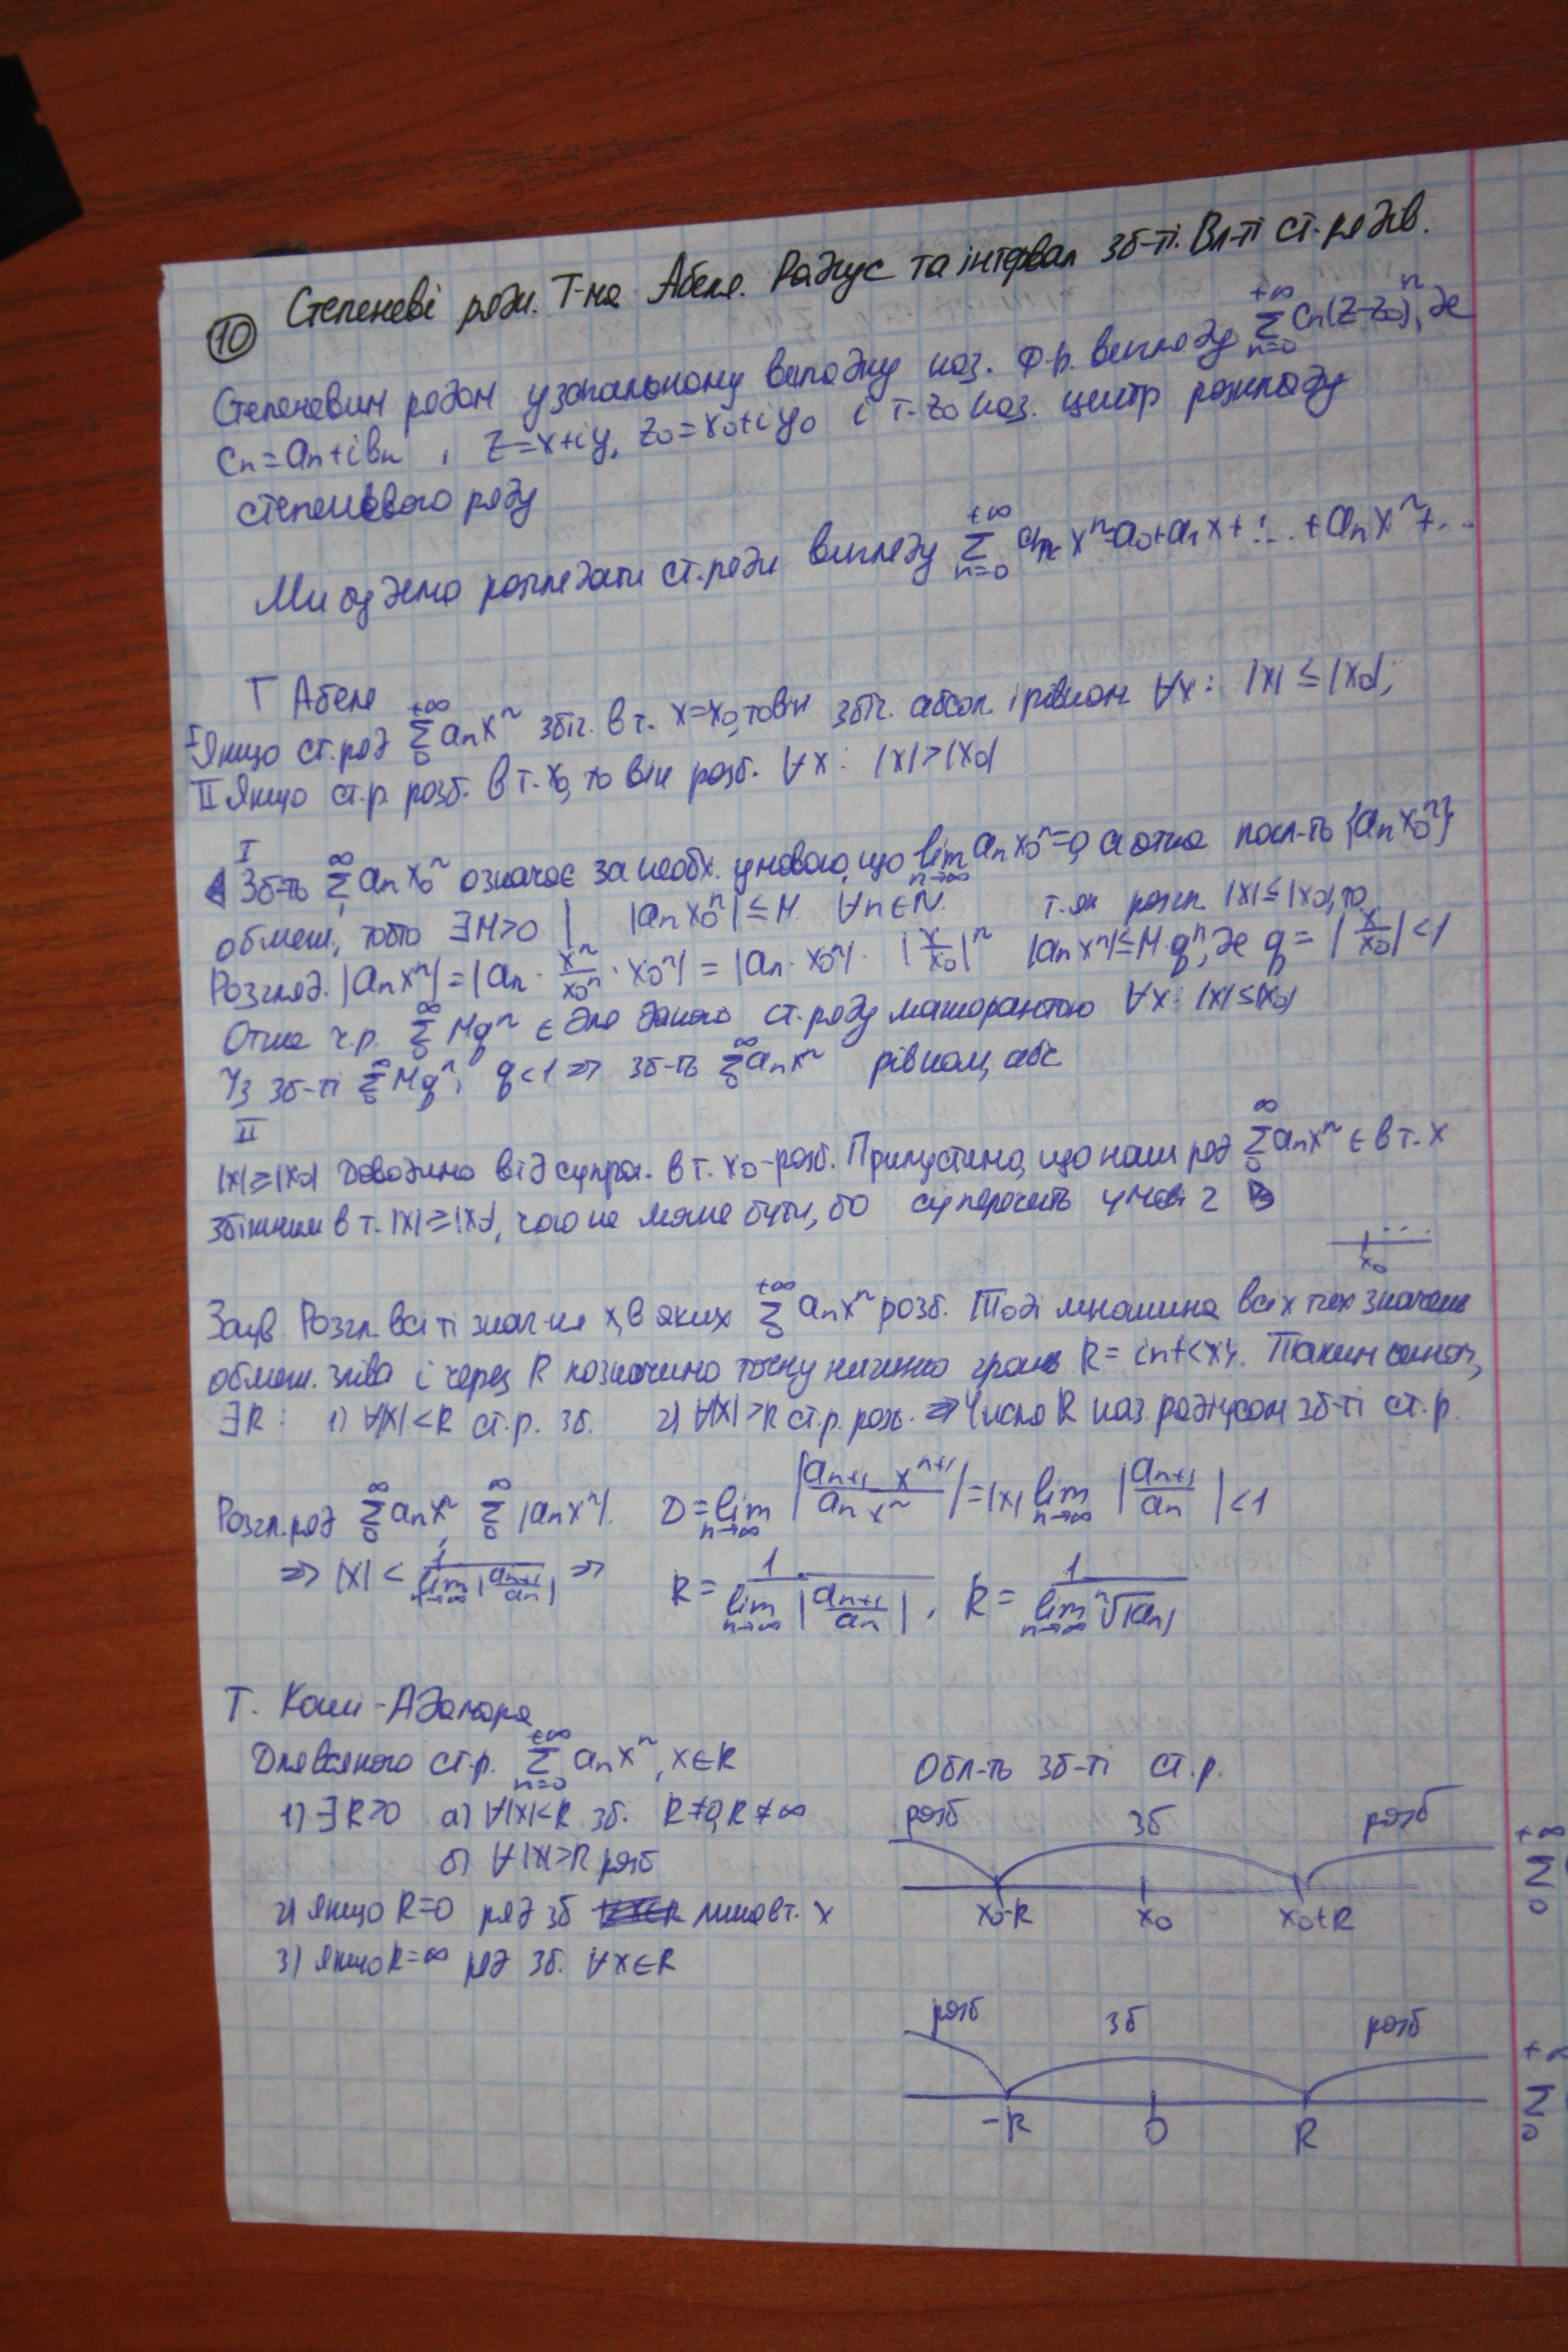 ⑩ Степеневі ряди. Т-ма Абеля. Радіус та інтервал зб-ті. Вл-ті ст. рядів.
Степеневим рядом у загальному випадку наз. ф.р. вигляду $\sum_{n=0}^{+\infty} c_n(z-z_0)^n$, де
$c_n=a_n+ib_n$, $z=x+iy$, $z_0=x_0+iy_0$ і т. $z_0$ наз. центр розкладу
степеневого ряду
Ми будемо розглядати ст. ряди вигляду $\sum_{n=0}^{+\infty} a_n x^n=a_0+a_1x+\ldots+a_nx^n+\ldots$
Т Абеля
I Якщо ст. ряд $\sum_0^{+\infty} a_nx^n$ збіг. в т. $x=x_0$, то він збіг. абсол. і рівном. $\forall x: |x| \leq |x_0|$;
II Якщо ст.р. розб. в т. $x_0$, то він розб. $\forall x: |x|>|x_0|$
I
◀ Зб-ть $\sum^{\infty} a_nx_0^n$ означає за необх. умовою, що $\lim_{n\to\infty} a_nx_0^n=0$, а отже посл-ть $\{a_nx_0^n\}$
обмеж., тобто $\exists M>0$ | $|a_nx_0^n|\leq M$ $\forall n\in N$. т. як розгл. $|x|\leq|x_0|$, то
Розгляд. $|a_nx^n|=|a_n\cdot\frac{x^n}{x_0^n}\cdot x_0^n|=|a_n\cdot x_0^n|\cdot|\frac{x}{x_0}|^n$ $|a_nx^n|\leq M\cdot q^n$, де $q=|\frac{x}{x_0}|<1$
Отже ч.р. $\sum_0^{\infty} Mq^n$ є для даного ст. ряду мажорантою $\forall x: |x|\leq|x_0|$
Із зб-ті $\sum_0^{\infty} Mq^n$, $q<1 \Rightarrow$ зб-ть $\sum_0^{\infty} a_nx^n$ рівном, абс.
II
$|x|\geq|x_0|$ Доводимо від супрот. в т. $x_0$ - розб. Припустимо, що наш ряд $\sum_0^{\infty} a_nx^n$ є в т. $x$
збіжним в т. $|x|\geq|x_0|$, чого не може бути, бо суперечить умові 2 ▷
$x_0$
Заув. Розгл. всі ті знач-ня $x$, в яких $\sum_0^{+\infty} a_nx^n$ розб. Тоді множина всіх тих значень
обмеж. зліва і через $R$ позначимо точну нижню грань $R=\inf\{x\}$. Таким чином,
$\exists R$: 1) $\forall|x|<R$ ст.р. зб. 2) $\forall|x|>R$ ст.р. розб. $\Rightarrow$ Число $R$ наз. радіусом зб-ті ст.р.
Розгл. ряд $\sum_0^{\infty} a_nx^n$, $\sum_0^{\infty} |a_nx^n|$. $D=\lim_{n\to\infty}|\frac{a_{n+1}x^{n+1}}{a_nx^n}|=|x|\lim_{n\to\infty}|\frac{a_{n+1}}{a_n}|<1$
$\Rightarrow |x|<\frac{1}{\lim_{n\to\infty}|\frac{a_{n+1}}{a_n}|} \Rightarrow$ $R=\frac{1}{\lim_{n\to\infty}|\frac{a_{n+1}}{a_n}|}$, $R=\frac{1}{\lim_{n\to\infty}\sqrt[n]{|a_n|}}$
Т. Коші-Адамара
Для всякого ст.р. $\sum_{n=0}^{+\infty} a_nx^n$, $x\in R$
1) $\exists R>0$ а) $\forall|x|<R$ зб. $R\neq0, R\neq\infty$
б) $\forall|x|>R$ розб
2) якщо $R=0$ ряд зб лише в т. $x$
3) якщо $R=\infty$ ряд зб. $\forall x\in R$
Обл-ть зб-ті ст.р.
розб зб розб
$x_0-R$ $x_0$ $x_0+R$
розб зб розб
$-R$ $0$ $R$
$\sum_0^{+\infty}$
$\sum_0$